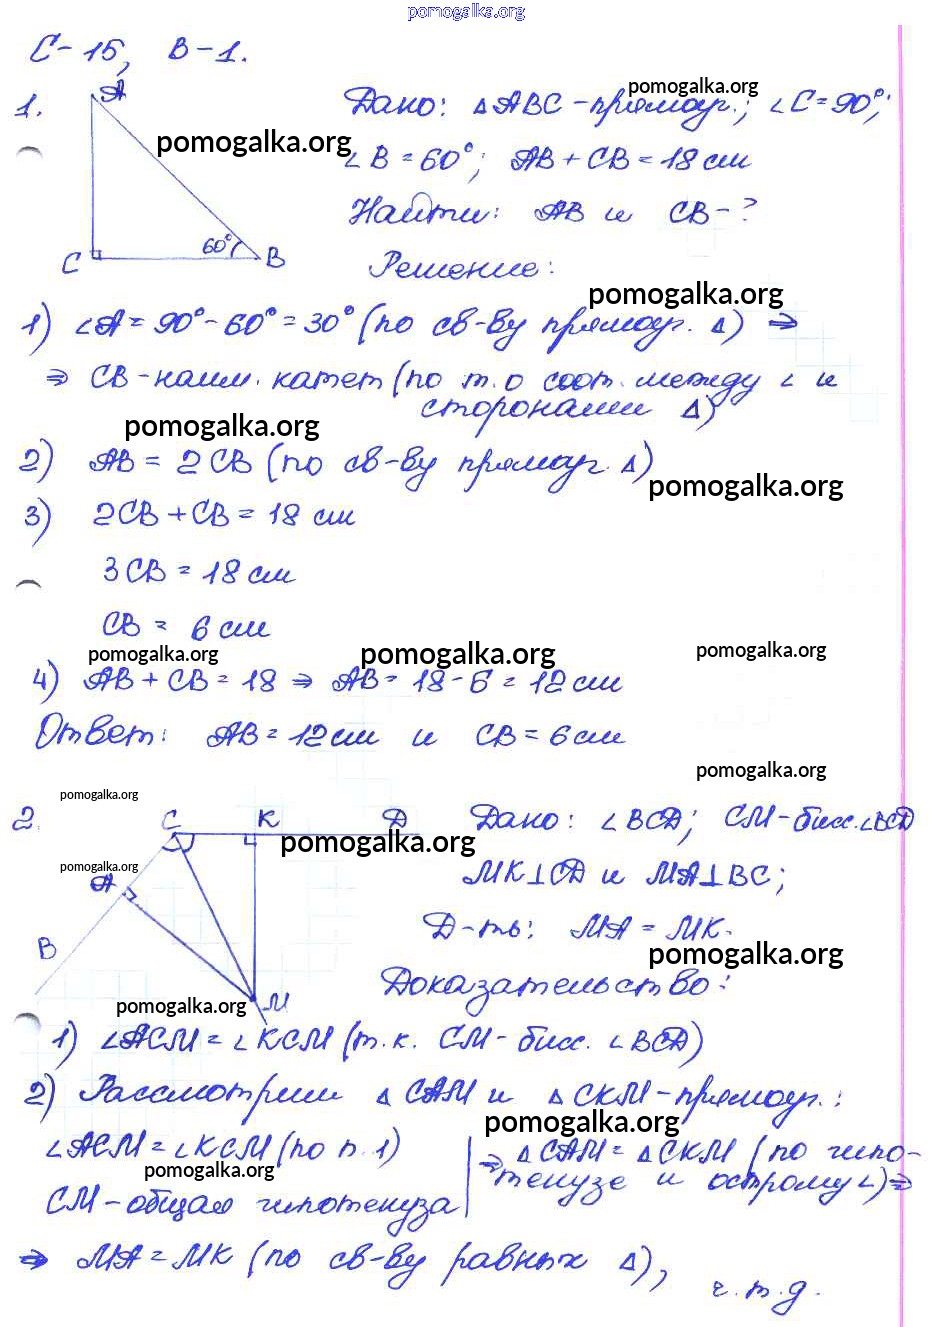 pomogalka.org
С-15, В-1.
1. A
pomogalka.org
pomogalka.org
Дано: △ABC-прямоуг.; ∠C=90°;
∠B=60°; AB+CB=18 см
Найти: AB и CB-?
C 60° B
Решение:
pomogalka.org
1) ∠A=90°-60°=30° (по св-ву прямоуг. △) ⇒
⇒ CB-наим. катет (по т. о соот. между ∠ и
сторонами △)
pomogalka.org
2) AB=2CB (по св-ву прямоуг. △)
pomogalka.org
3) 2CB+CB=18 см
3CB=18 см
CB=6 см
pomogalka.org pomogalka.org pomogalka.org
4) AB+CB=18 ⇒ AB=18-6=12 см
Ответ: AB=12 см и CB=6 см
pomogalka.org
pomogalka.org
2. C K D
Дано: ∠BCD; CM-бисс. ∠BCD
pomogalka.org
pomogalka.org
A
MK⊥CD и MA⊥BC;
Д-ть: MA=MK.
B
pomogalka.org
Доказательство:
M
pomogalka.org
1) ∠ACM=∠KCM (т.к. CM-бисс. ∠BCD)
2) Рассмотрим △CAM и △CKM-прямоуг.:
pomogalka.org
∠ACM=∠KCM (по п. 1) ⇒ △CAM=△CKM (по гипо-
pomogalka.org
тенузе и острому ∠) ⇒
CM-общая гипотенуза
⇒ MA=MK (по св-ву равных △),
ч.т.д.